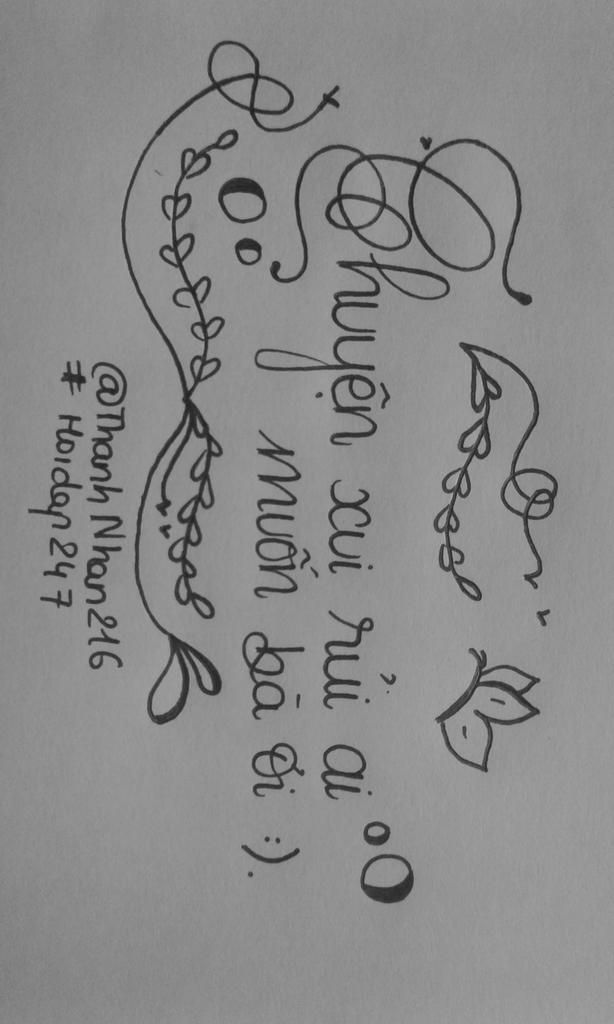 Chuyện xui rủi ai
muốn bà ơi :).
@Thanh Nhan216
# Hoidap247